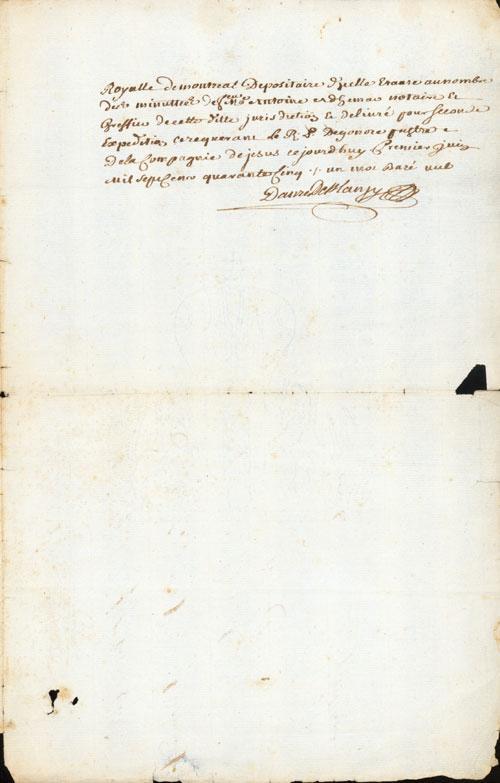 Royalle de montreal Depositaire d'icelle Etante au nombre
des minuttes de feu Me antoine adhemar notaire et
Greffier de cette ditte jurisdiction et delivré pour seconde
Expedition ce requerant le R. P. Degonore prestre
de la Compagnie de jesus ce jourd'huy Premier juin
Mil Sept Cent quarante Cinq ./. un mot Raré nul
Danré De Blanzy